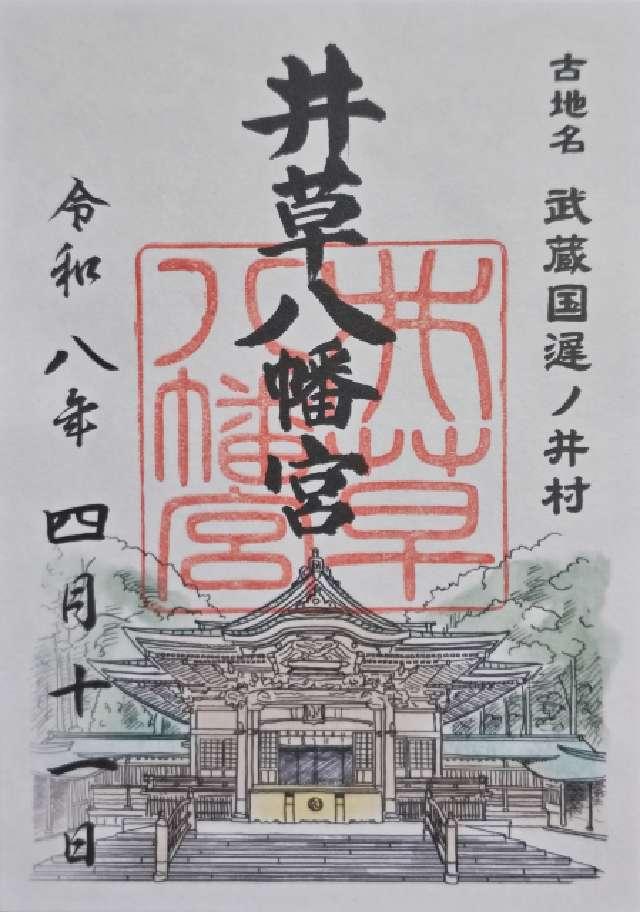 古地名 武蔵国遅ノ井村
井草八幡宮
井草八幡宮
令和八年四月十一日